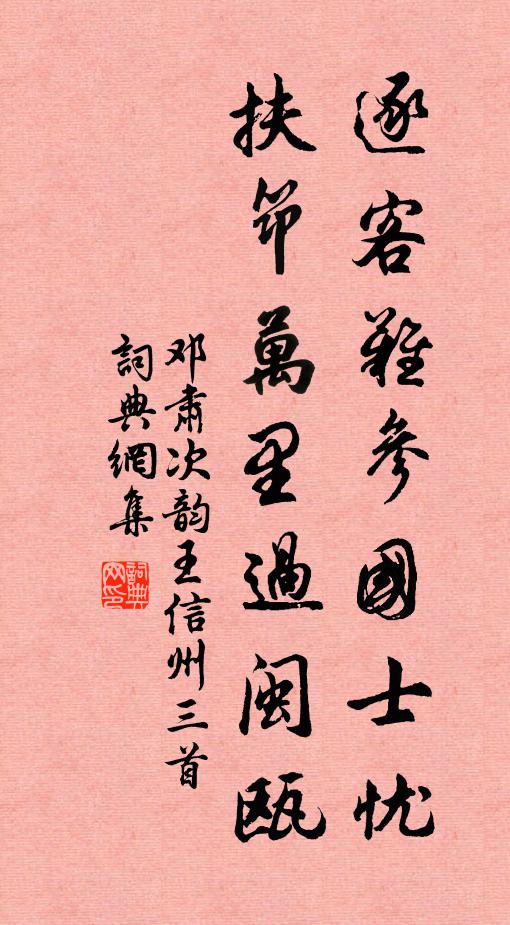 逐客难参國士忧
扶筇萬里過闽瓯
邓肃次韵王信州三首
詞典網集
詞典网印